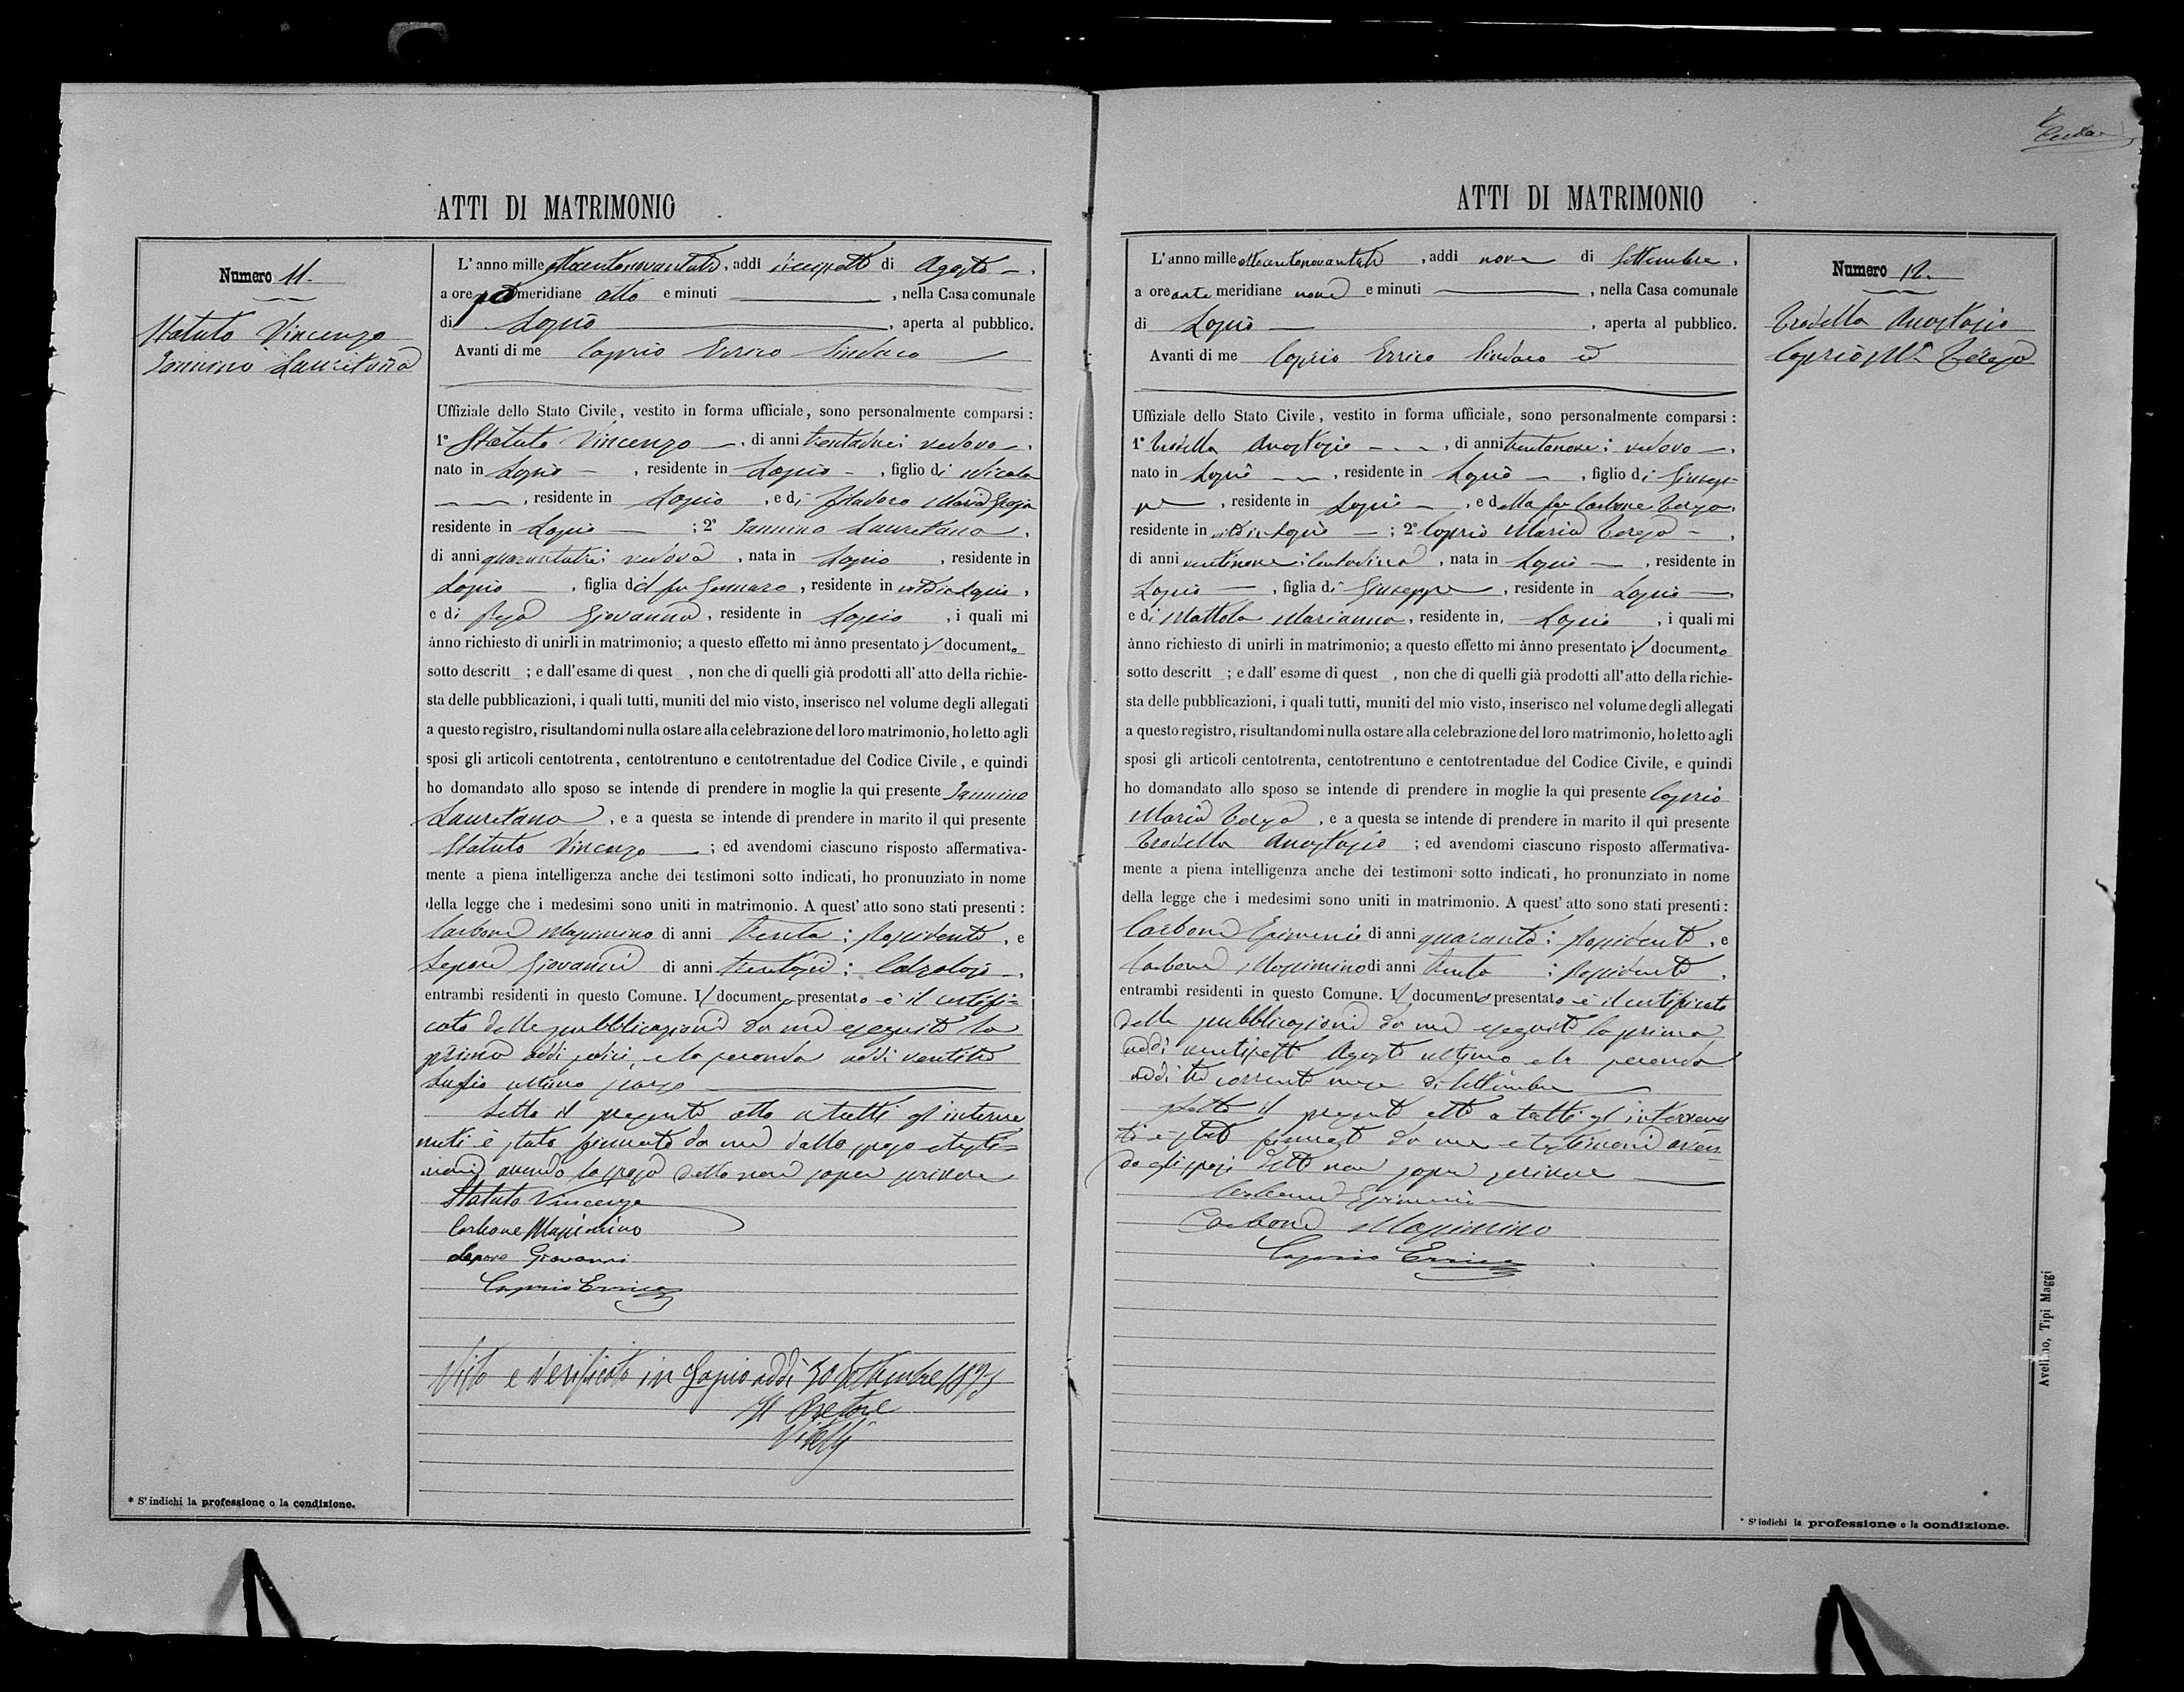 ATTI DI MATRIMONIO
Numero 11.
Statuto Vincenzo
Iannino Lauretana
L'anno mille ottocentonovantatre, addì diecisette di Agosto
a ore meridiane otto e minuti , nella Casa comunale
di Lapio , aperta al pubblico.
Avanti di me Caprio Errico Sindaco
Uffiziale dello Stato Civile, vestito in forma ufficiale, sono personalmente comparsi:
1° Statuto Vincenzo , di anni trentadue; vedovo
nato in Lapio , residente in Lapio , figlio di Nicola
, residente in Lapio , e di Maria
residente in Lapio ; 2° Iannino Lauretana ,
di anni quarantatre; vedova , nata in Lapio , residente in
Lapio , figlia del fu Gennaro , residente in vita in Lapio ,
e di Giovanna , residente in Lapio , i quali mi
ànno richiesto di unirli in matrimonio; a questo effetto mi ànno presentato il documento
sotto descritt ; e dall'esame di quest , non che di quelli già prodotti all'atto della richie-
sta delle pubblicazioni, i quali tutti, muniti del mio visto, inserisco nel volume degli allegati
a questo registro, risultandomi nulla ostare alla celebrazione del loro matrimonio, ho letto agli
sposi gli articoli centotrenta, centotrentuno e centotrentadue del Codice Civile, e quindi
ho domandato allo sposo se intende di prendere in moglie la qui presente Iannino
Lauretana , e a questa se intende di prendere in marito il qui presente
Statuto Vincenzo ; ed avendomi ciascuno risposto affermativa-
mente a piena intelligenza anche dei testimoni sotto indicati, ho pronunziato in nome
della legge che i medesimi sono uniti in matrimonio. A quest'atto sono stati presenti:
Carbone Massimino di anni trenta; possidente , e
Lepore Giovanni di anni trentasei; Calzolaio ,
entrambi residenti in questo Comune. Il documento presentato è il certifi=
cato delle pubblicazioni da me eseguite la
prima addì sedici, e la seconda addì ventitre
Luglio ultimo scorso
Letto il presente atto a tutti gl'interve
nuti è stato firmato da me dallo sposo e testi=
moni, avendo la sposa detto non saper scrivere
Statuto Vincenzo
Carbone Massimino
Lepore Giovanni
Caprio Errico
Visto e verificato in Lapio addì 30 Settembre 1893
Il Pretore
* S'indichi la professione o la condizione.
ATTI DI MATRIMONIO
Numero 12.
Trodella Anastasio
Caprio Ma Teresa
L'anno mille ottocentonovantatre , addì nove di Settembre ,
a ore ante meridiane nove e minuti , nella Casa comunale
di Lapio , aperta al pubblico.
Avanti di me Caprio Errico Sindaco ed
Uffiziale dello Stato Civile, vestito in forma ufficiale, sono personalmente comparsi:
1° Trodella Anastasio , di anni trentanove; vedovo ,
nato in Lapio , residente in Lapio , figlio di Giusep=
pe , residente in Lapio , e della fu Carbone Teresa,
residente in vita in Lapio ; 2° Caprio Maria Teresa ,
di anni ventinove; Contadina , nata in Lapio , residente in
Lapio , figlia di Giuseppe , residente in Lapio ,
e di Mottola Marianna, residente in Lapio , i quali mi
ànno richiesto di unirli in matrimonio; a questo effetto mi ànno presentato il documento
sotto descritt ; e dall'esame di quest , non che di quelli già prodotti all'atto della richie-
sta delle pubblicazioni, i quali tutti, muniti del mio visto, inserisco nel volume degli allegati
a questo registro, risultandomi nulla ostare alla celebrazione del loro matrimonio, ho letto agli
sposi gli articoli centotrenta, centotrentuno e centotrentadue del Codice Civile, e quindi
ho domandato allo sposo se intende di prendere in moglie la qui presente Caprio
Maria Teresa , e a questa se intende di prendere in marito il qui presente
Trodella Anastasio ; ed avendomi ciascuno risposto affermativa-
mente a piena intelligenza anche dei testimoni sotto indicati, ho pronunziato in nome
della legge che i medesimi sono uniti in matrimonio. A quest'atto sono stati presenti:
Carbone Epimenio di anni quaranta; possidente , e
Carbone Massimino di anni trenta ; possidente ,
entrambi residenti in questo Comune. Il documento presentato è il certificato
delle pubblicazioni da me eseguite la prima
addì ventisette Agosto ultimo e la seconda
addì tre corrente mese di Settembre
Letto il presente atto a tutti gl'intervenu
ti è stato firmato da me e testimoni aven=
do gli sposi detto non saper scrivere
Carbone Epimenio
Carbone Massimino
Caprio Errico
Avellino, Tipi Maggi
* S'indichi la professione o la condizione.